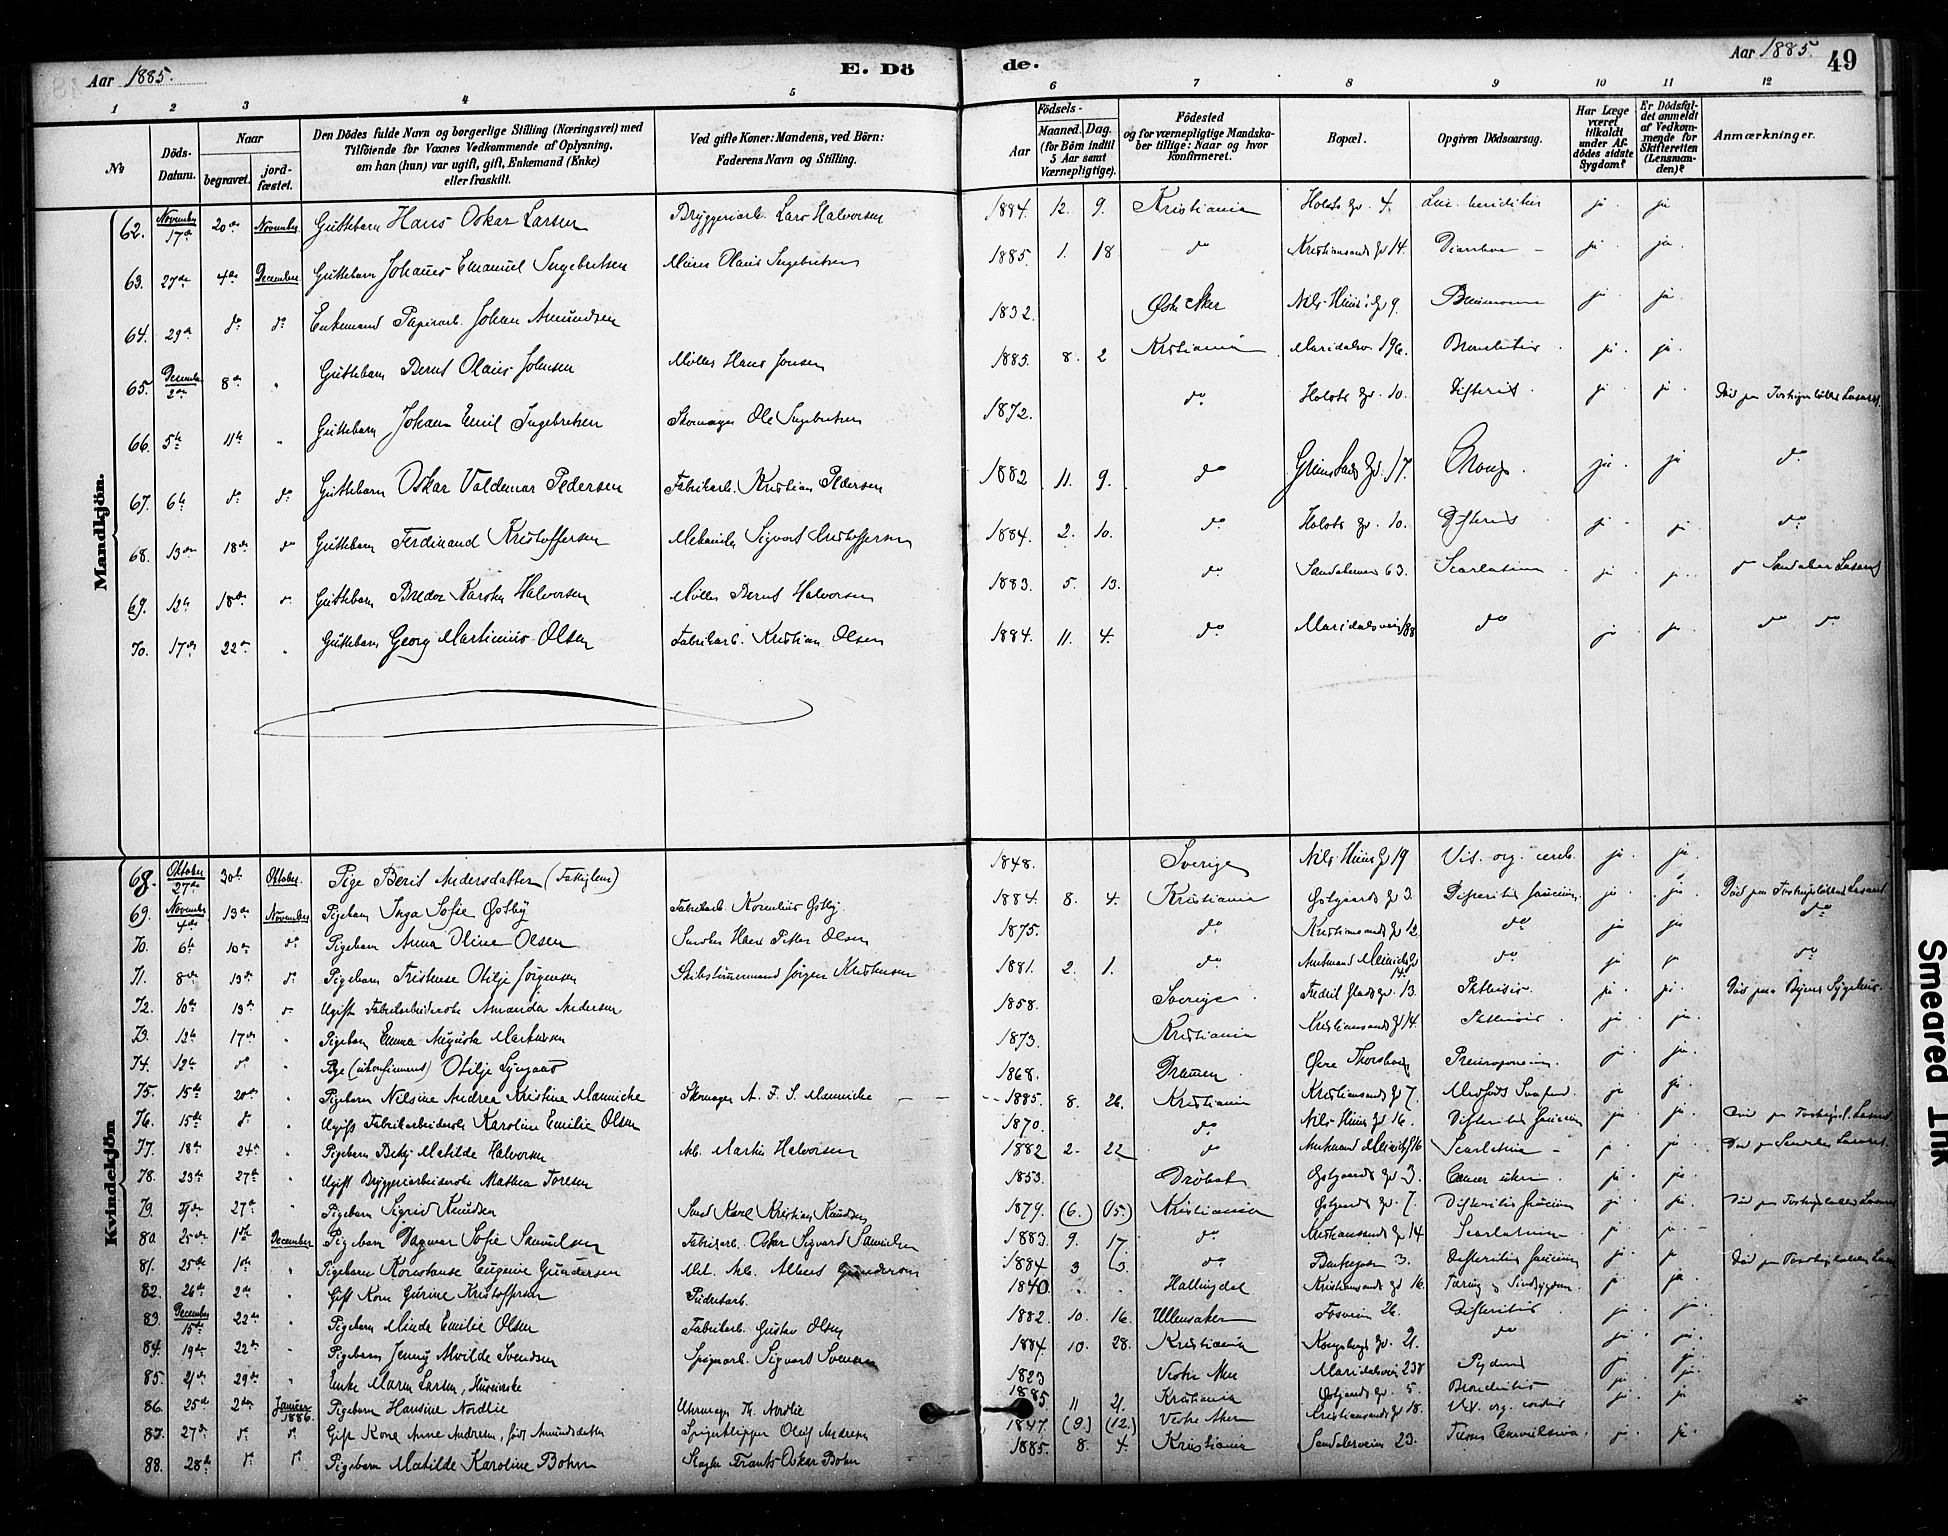 Aar 1885. E. Dö de. Aar 1885. 49
1 2 3 4 5 6 7 8 9 10 11 12
No
Döds-Datum.
Naar
begravet. jordfæstet.
Den Dödes fulde Navn og borgerlige Stilling (Næringsvei) med
Tilföiende for Voxnes Vedkommende af Oplysning,
om han (hun) var ugift, gift, Enkemand (Enke)
eller fraskilt.
Ved gifte Koner: Mandens, ved Börn:
Faderens Navn og Stilling.
Födsels-
Aar Maaned. Dag.
(for Börn indtil
5 Aar samt
Værnepligtige).
Födested
og for værnepligtige Mandska-
ber tillige: Naar og hvor
konfirmeret.
Bopæl.
Opgiven Dödsaarsag.
Har Læge
været
tilkaldt
under Af-
dödes sidste
Sygdom?
Er Dödsfal-
det anmeldt
af Vedkom-
mende for
Skifteretten
(Lensman-
den)?
Anmærkninger.
Mandkjön.
62. November 17de 20de November Guttebarn Hans Oskar Larsen Bryggeriarb. Lars Halvorsen 1884. 12. 9. Kristiania Holsts gd. 4. ja ja
63. 27de 4de December Guttebarn Johannes Emanuel Ingebretsen Murer Olaus Ingebretsen 1885. 1. 18. do Kristiansands gd 14. Diarrhoe ja ja
64. 29de do do Enkemand Papirarb. Johan Amundsen 1832. Østre Aker Nils Huus' g 9. ja ja
65. December 2den 8de " Guttebarn Bernt Olaus Johnsen Møller Hans Jonsen 1885. 8. 2 Kristiania Maridalsv. 196. ja ja
66. 5te 11te " Guttebarn Johan Emil Ingebretsen Skomager Ole Ingebretsen 1872. do Holsts gd. 10. Difterit ja ja Død paa Lasaret
67. 6te do do Guttebarn Oskar Valdemar Pedersen Fabrikarb. Kristian Pedersen 1882 11. 9. do Grimstads gd. 17. Croup. ja ja do
68. 13de 18de do Guttebarn Ferdinand Kristoffersen Mekaniker Sigvart Kristoffersen 1884. 2. 10. do Holsts gd. 10. Difterit ja ja do
69. 12te 18de do Guttebarn Karsten Halvorsen Møller Bernt Halvorsen 1883. 5. 13. do Sandakerveien 63. Scarlatina ja ja Sandaker Lasaret
70. 17de 22de " Guttebarn Georg Martinius Olsen Fabrikarb. Kristian Olsen 1884. 11. 4. do Maridalsveien 188 do ja ja do do
Kvindekjön
68. Oktober 27de 30te Oktober. Pige Berit Andersdatter (Fattiglem) 1848. Sverige Nils Huus g 19 Vit. org. cereb. ja ja
69. November 4de 13de November Pigebarn Inga Sofie Østby Fabrikarb. Kornelius Østby 1884. 8. 4. Kristiania Østgaards gd 3. Difteritis faucium ja ja Død paa Lasaret
70. 6te 10de do Pigebarn Anna Oline Olsen Snedker Hans Petter Olsen 1875. do Kristiansands gd 12. do ja ja do
71. 8de 13de do Pigebarn Otilje Jørgensen Skibstømmermand Jørgen Kristensen 1881. 2. 1. do Amtmand Meinichs g 14. do ja ja do
72. 10de 19de do Ugift Fabrikarbeiderske Amanda Andersen 1858. Sverige Fredrik Glads gd. 13. Phthisis ja ja Død paa Byens Sygehus.
73. 12te 17de " Pigebarn Emma Augusta Martinsen 1873. Kristiania Kristiansands gd 14. ja ja
74. 12te do " Pige (ukonfirmeret) Otilje Lyngaas 1868. Drammen Øvre Thorshaug ja ja
75. 15de 20de " Pigebarn Nilsine Andrea Kristine Mannicke Skomager A. F. S. Mannicke 1885. 8. 26. Kristiania Kristiansands gd 7. Medfødt Svaghed. ja ja
76. 15de do " Ugift Fabrikarbeiderske Karoline Emilie Olsen 1870. do Nils Huus gd 16. Difteritis faucium ja ja Død paa Lasaret
77. 18de 24de " Pigebarn Matilde Halvorsen Arb. Martin Halvorsen 1882 2. 22 do Amtmand Meinichs g 16 Scarlatina ja ja Død paa Sandaker Lasaret.
78. 23de 27de " Ugift Bryggeriarbeiderske Mathea Toresen 1853. Drøbak Østgaards gd. 3. Cancer uteri ja ja
79. 27de " Pigebarn Sigrid Knudsen Karl Kristian Knudsen 1879. (6.) (15) Kristiania Østgaards gd. 7. Difteritis faucium ja ja Død paa Lasaret
80. 25de 1ste December Pigebarn Dagmar Sofie Samuelsen Fabrikarb. Oskar Sigvard Samuelsen 1883. 9. 17 do Kristiansands gd 14 Scarlatina ja ja
81. 25de 1ste " Pigebarn Konstanse Eugenie Gundersen Arb. Albert Gundersen 1884 3 3. do 3. Difteritis faucium ja ja Død paa Lasaret
82. 26de 2den " Gift Kone Gurine Kristoffersen 1840. Hallingdal Kristiansands gd 16. Tæring og Sindssygdom. ja ja
83. December 15de 22de " Pigebarn Minda Emilie Olsen Fabrikarb. Gustav Olsen 1882. 10. 16. Ullensaker Fosveien 26. Difteritis ja ja
84. 19de 22de " Pigebarn Jenny Alvilde Svendsen Sigvart Svensen 1884 10. 28. Kristiania Kongsbergs gd. 21. do ja ja
85. 21de 29de " Enke Maren Larsen, 1823 Vestre Aker Maridalsveien 238 ja ja
86. 25de 2den Januar 1886. Pigebarn Hansine Nordlie Uhrmager Th. Nordlie 1885. 11 21. Kristiania Østgaards gd. 5. Bronchitis ja ja
87. 27de do do Gift Kone Anne Andresen, født Amundsdatter Oluf Andresen 1847. (9.) (12.) Vestre Aker Kristiansands gd 18. Vit. org. cordis ja ja
88. 28de do do Pigebarn Matilde Karoline Bohn Frants Oskar Bohn 1885. 8. 4. Kristiania Sandakerveien 23. ja ja
Smeared Ink